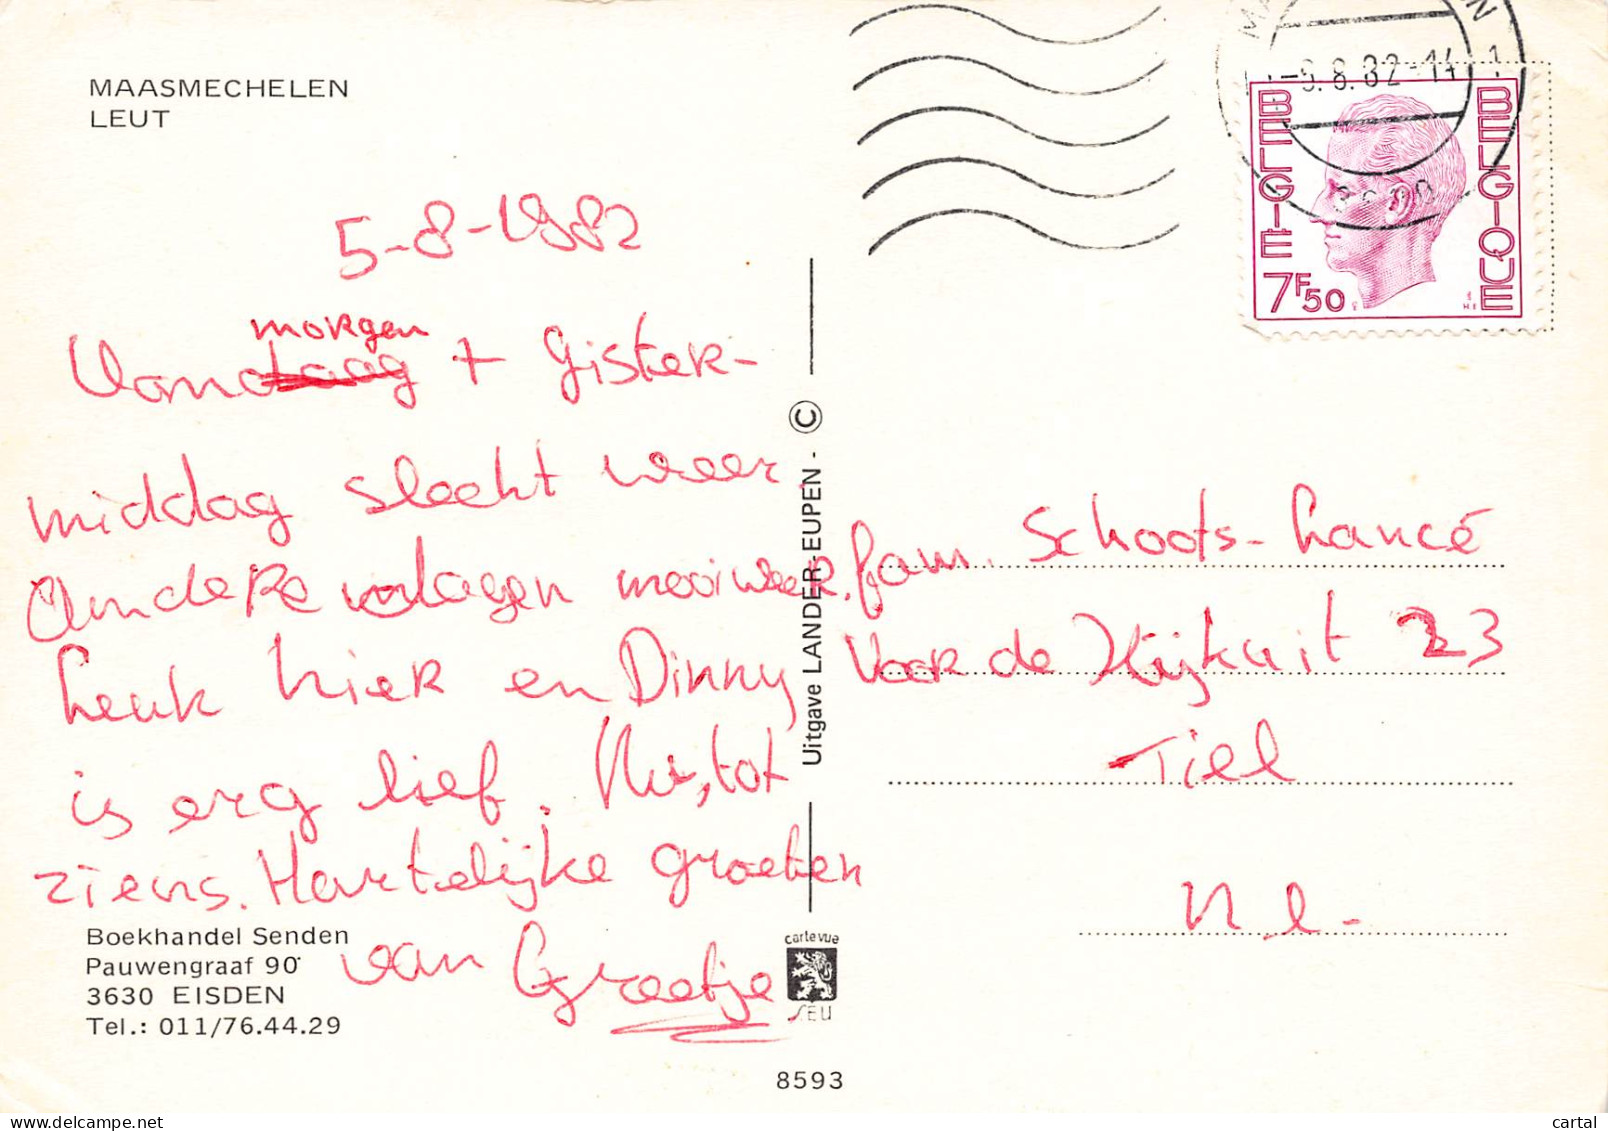 MAASMECHELEN
LEUT
5-8-1982
Vanmorgen + Gister-
middag slecht weer
Andere dagen mooi weer.
Leuk hier en Dinny
is erg lief. Nu, tot
ziens. Hartelijke groeten
van Greetje
Boekhandel Senden
Pauwengraaf 90
3630 EISDEN
Tel.: 011/76.44.29
Uitgave LANDER-EUPEN - ©
carte vue
8593
-9.8.82-14
1
BELGIË
BELGIQUE
7F50
fam. Schoots-Lancé
Voor de Kijkuit 23
Tiel
Nl.
cartal